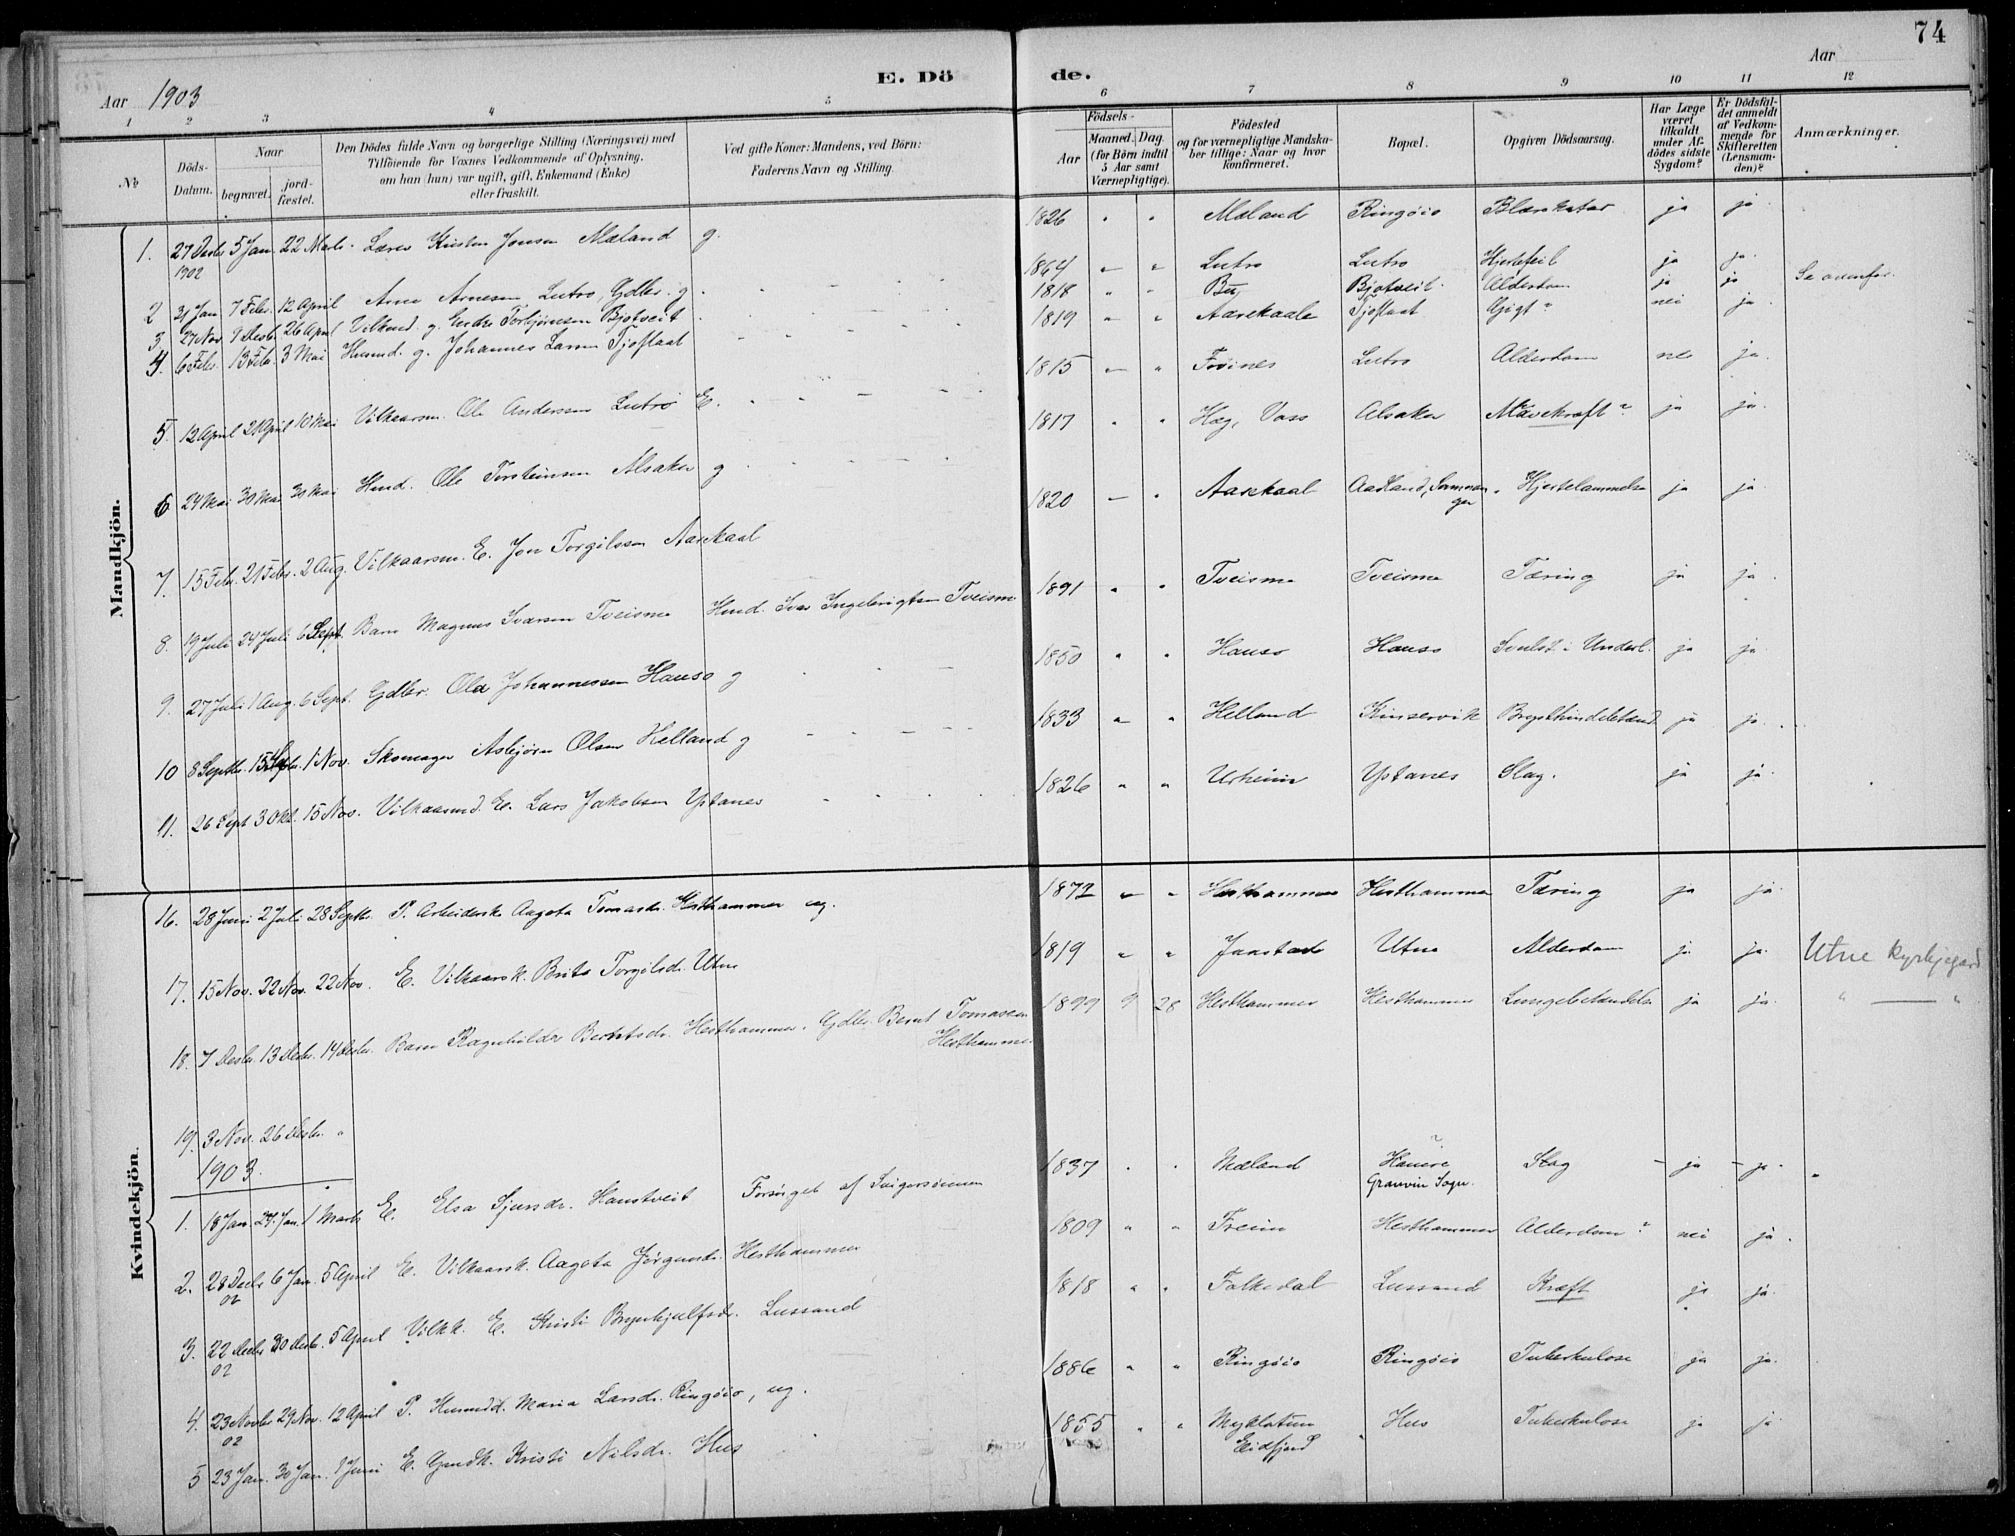 74
E. Döde.
Aar 1903
Aar
1 2 3 4 5 6 7 8 9 10 11 12
№
Döds-Datum.
Naar
begravet.
jord-fæstet.
Den Dödes fulde Navn og borgerlige Stilling (Næringsvei) med
Tilföiende for Voxnes Vedkommende af Oplysning,
om han (hun) var ugift, gift, Enkemand (Enke)
eller fraskilt.
Ved gifte Koner: Mandens, ved Börn:
Faderens Navn og Stilling.
Födsels-
Aar
Maaned. Dag.
(for Börn indtil
5 Aar samt
Værnepligtige).
Födested
og for værnepligtige Mandska-
ber tillige: Naar og hvor
konfirmeret.
Bopæl.
Opgiven Dödsaarsag.
Har Læge
været
tilkaldt
under Af-
dödes sidste
Sygdom?
Er Dödsfal-
det anmeldt
af Vedkom-
mende for
Skifteretten
(Lensman-
den)?
Anmærkninger.
Mandkjön.
1. 27 Decbr 1902 5 Jan. 22 Marts. Lærer Kristen Jonsen Mæland g. 1826 " " Mæland Ringöio Blærekatar ja ja
2 31 Jan 7 Febr. 12 April Arne Arnesen Lutro, Gdbr. g. 1864 " " Lutro Lutro Hjertefeil ja ja.
3. 27 Nov 1 Decbr. 26 April Vilkmd. g. Endre Torbjörnsen Bjotveit 1818 " " Bu Bjotveit Alderdom ja ja Se ovenfor.
4. 6 Febr. 13 Febr. 3 Mai Husmd. g. Johannes Larsen Tjoflaat 1819 " " Aarekaale Tjoflaat Gigt? nei ja
5. 12 April 21 April 10 Mai Vilkaarsm. Ole Andersen Lutro E. 1815 " " Froines Lutro Alderdom nei ja.
6 24 Mai 30 Mai 30 Mai Husmd. Ole Torsteinsen Alsaker g 1817 " " Hæg, Voss Alsaker Mavekræft? ja ja.
7. 15 Febr. 21 Febr. 2 Aug. Vilkaarsm. E. Jon Torgilssen Aarekaal 1820 " " Aarekaal Aadland, Hjertelammelse ja ja
8. 19 Juli 24 Juli 6 Sept. Barn Magnus Svarsen Tveisme Husmd. Svar Ingebrigtsen Tveisme 1891 " " Tveisme Tveisme Tæring ja ja
9. 27 Juli 1 Aug. 6 Sept. Gdbr. Ola Johannessen Hauso g 1850 " " Hauso Hauso Svulst i Underl. ja ja
10 8 Septbr. 15 Septbr. 1 Nov. Skomager Asbjörn Olsen Helland g 1833 " " Helland Kinservik Brysthindebetænd. ja ja
11. 26 Sept 3 Okt. 15 Nov. Vilkaarsmd. E. Lars Jakobsen Ystanes 1826 " " Urheim Ystanes Slag. ja ja.
Kvindekjön.
16. 28 Juni 2 Juli 28 Septbr. P. Arbeiderske Aagota Tomasdr. Hesthammer ug. 1872 " " Hesthammer Hesthammer Tæring ja ja
17. 15 Nov. 22 Nov. 22 Nov. E. Vilkaarsk. Brita Torgilsdr. Utne 1819 " " Jaastad Utne Alderdom ja ja. Utne kyrkjegard
18. 7 Decbr. 13 Decbr. 14 Decbr. Barn Ragnhilda Berntsdr. Hesthammer. Gdbr. Bernt Tomassen Hesthammer 1899 9 28 Hesthammer Hesthammer Lungebetændelse ja ja. " — "
19. 3 Nov. 26 Decbr. "
1903.
1. 18 Jan. 24 Jan. 1 Marts E. Elsa Sjursdr. Haustveit Forsörget af Svigersönnen 1837 Mæland ? Granvin Sogn. Slag ja ja.
2. 28 Decbr 02 6 Jan. 5 April E. Vilkaarsk. Aagota Jörgensdr. Hesthammer 1809 " " Treim Hesthammer Alderdom? nei ja.
3. 22 Decbr 02 30 Decbr. 5 April Vilkk. E. Kristi Brynhjulfsdr. Lussand 1818 " " Folkedal Lussand Kræft ja ja.
4. 23 Novbr 02 29 Nov. 12 April P. Husmdd. Maria Larsdr. Ringöio, ug. 1886 " " Ringöio Ringöio Tuberkulose ja ja.
5 23 Jan. 30 Jan. 1 Juni E. Gmdk. Kristi Nilsdr. Hus 1855 " " Myklatun Eidfjord Hus Tuberkulose ja ja